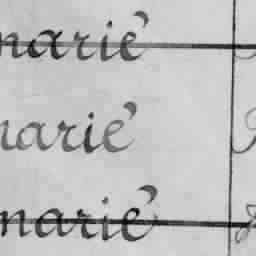 marié
marié
marié